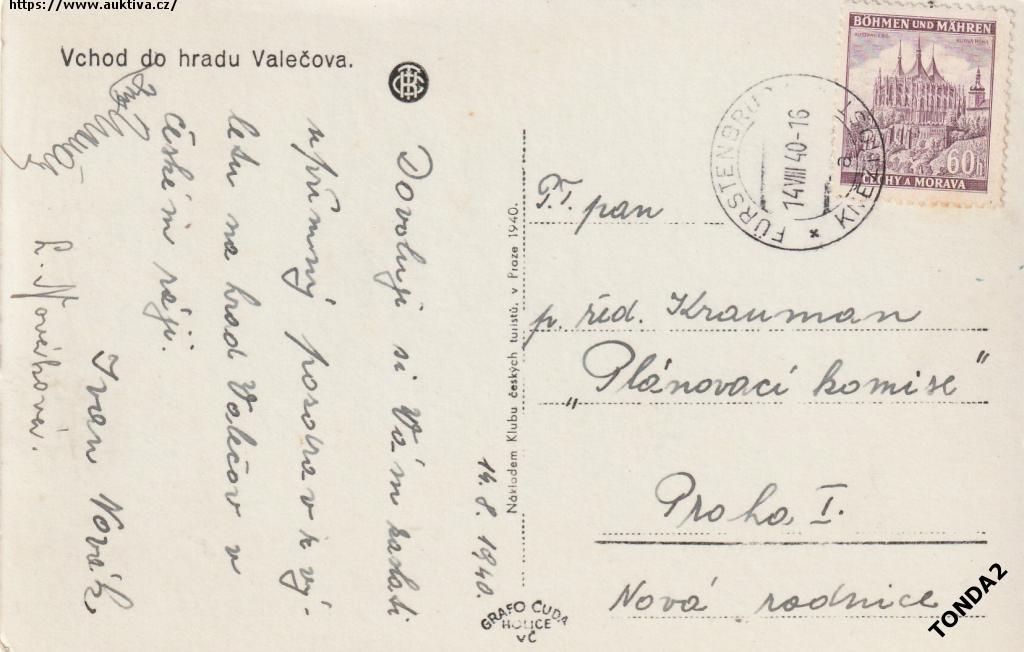 https://www.auktiva.cz/
Vchod do hradu Valečova.
Dovoluji si Vám zaslati
upřímný pozdrav z vý-
letu na hrad Valečov v
českém ráji.
Ivan Novák
L. Nováková.
14.8.1940.
Nákladem Klubu českých turistů, v Praze 1940.
GRAFO ČUDA
HOLICE
VČ
BÖHMEN UND MÄHREN
60h
ČECHY A MORAVA
FÜRSTENBRU
14 VIII 40-16
a
KNĚŽ
P.T. pan
p. řed. Krauman
„Plánovací komise"
Praha I.
Nová radnice
TONDA2